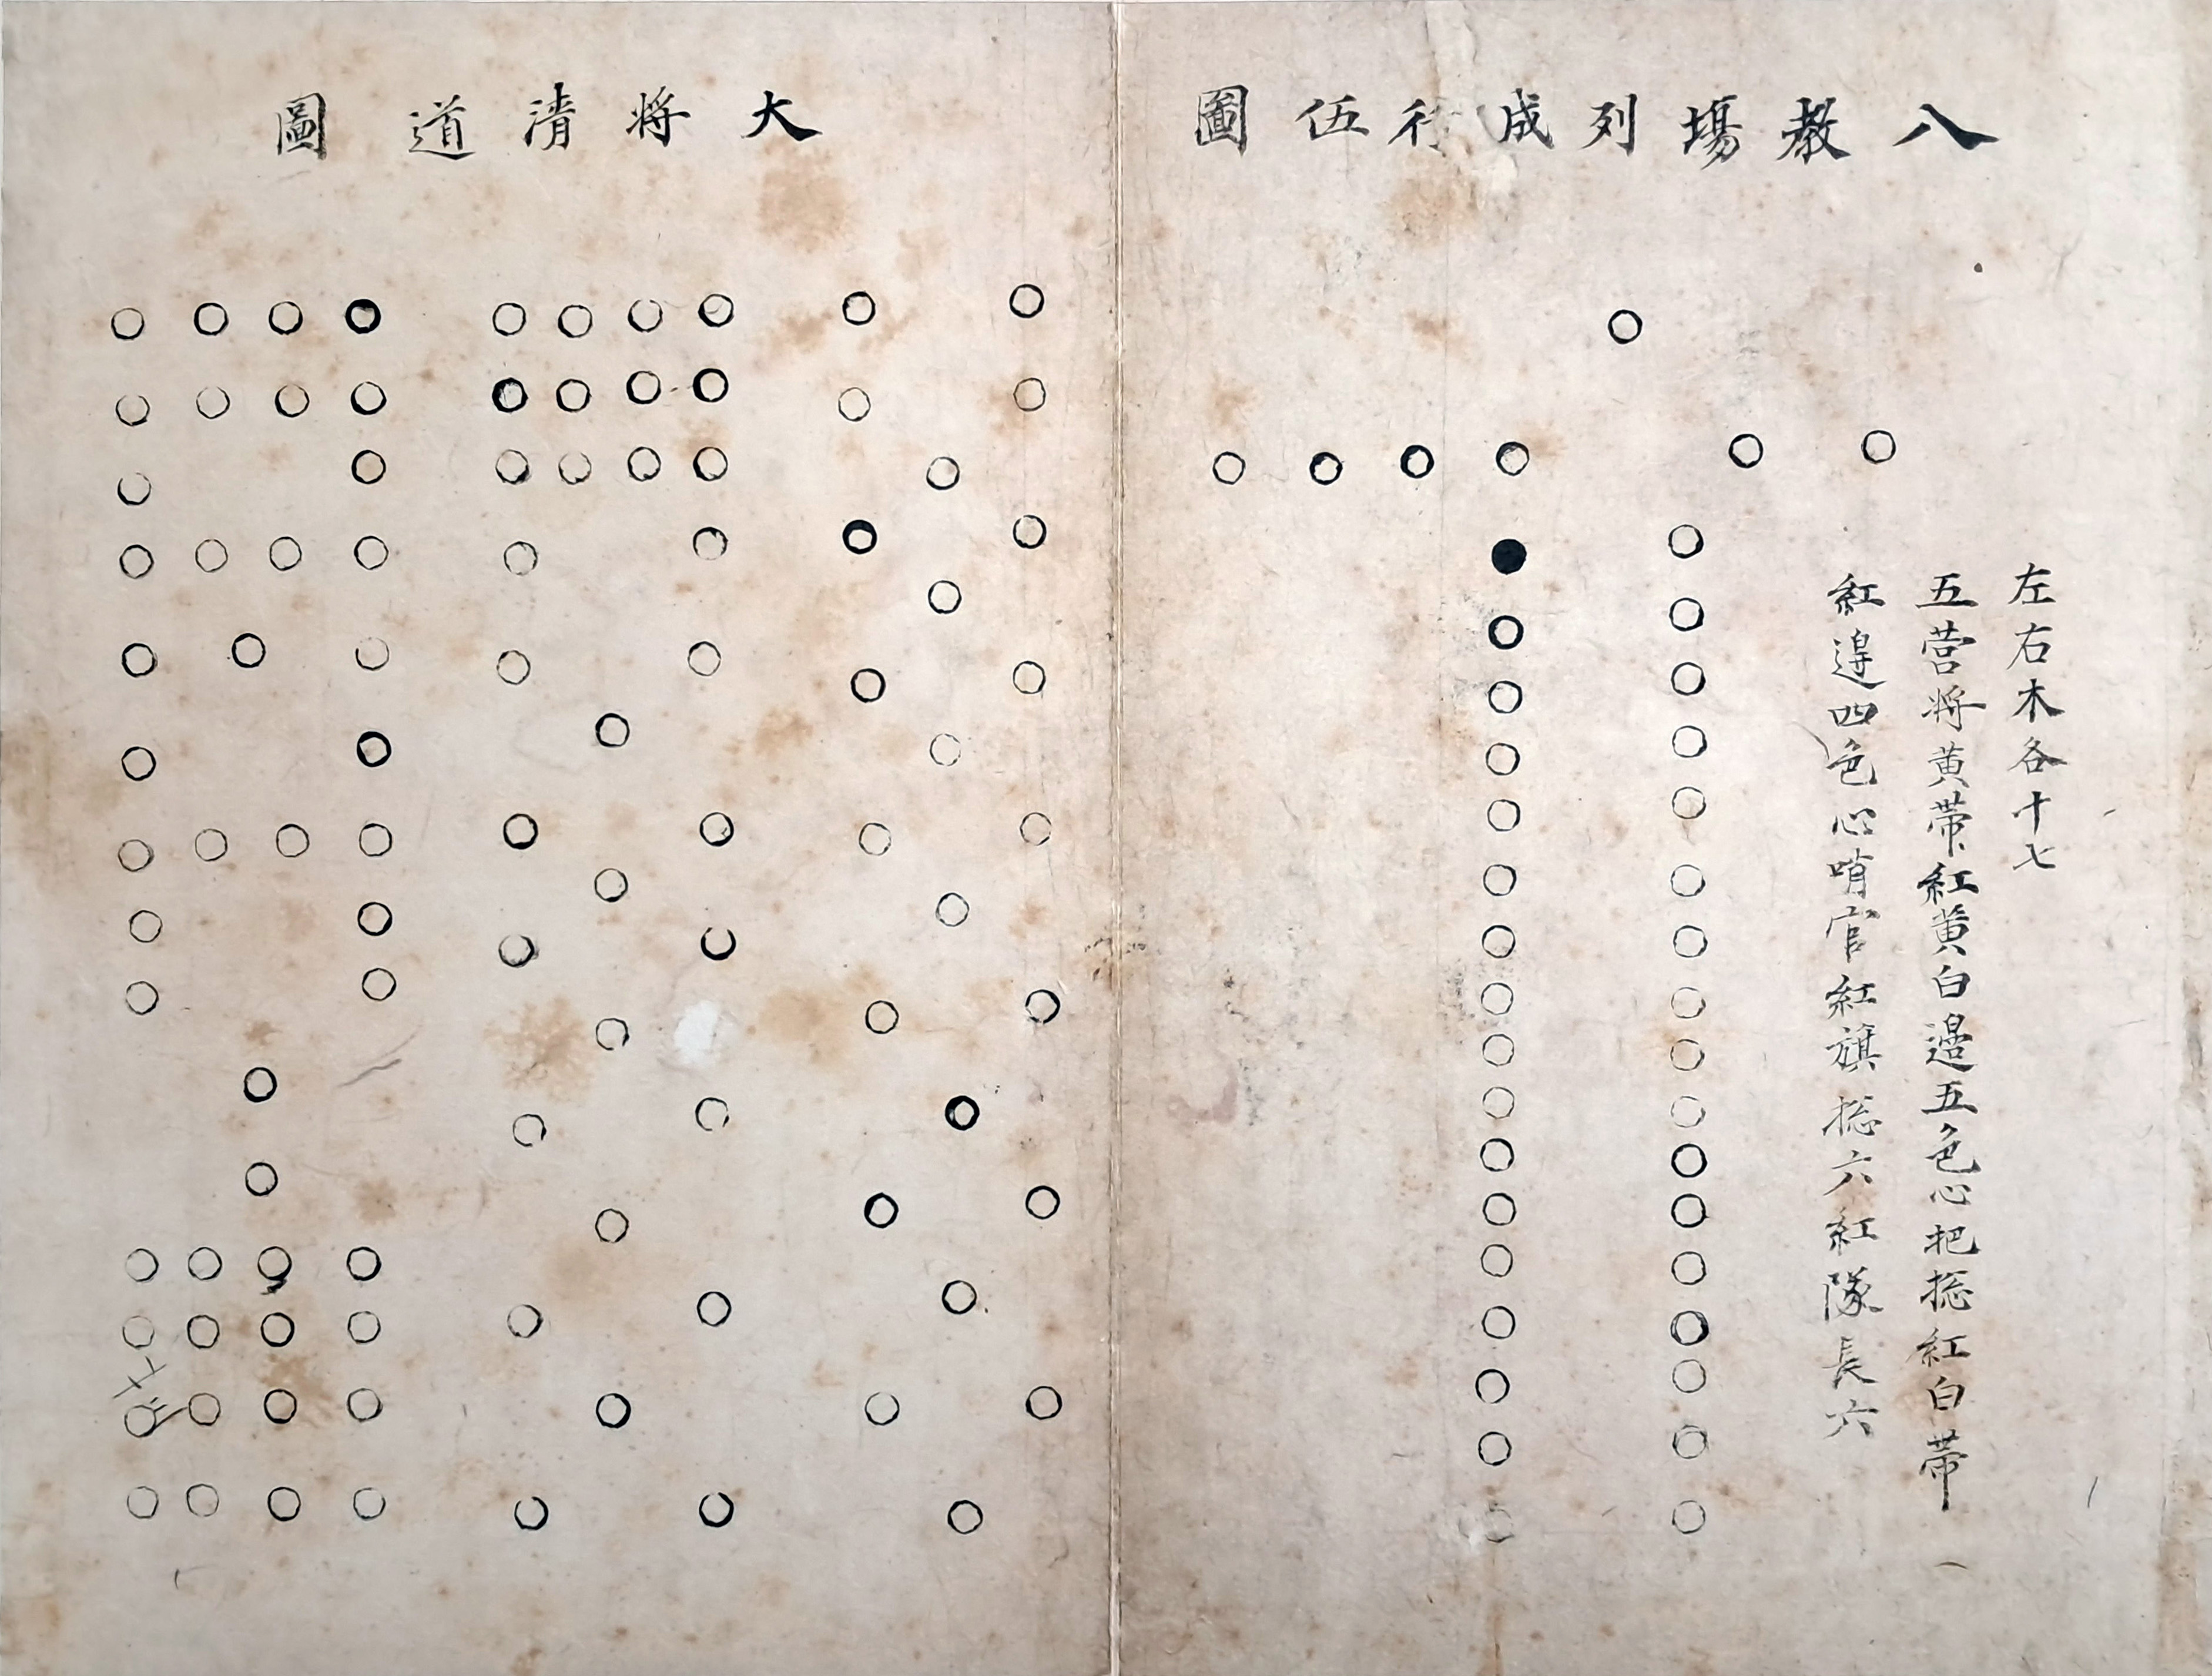 八教場列成行伍圖
左右木各十七
五营将黄带紅黄白邉五色心把捴紅白帯
紅邉四色心哨官紅旗捴六紅隊長六
大将清道圖